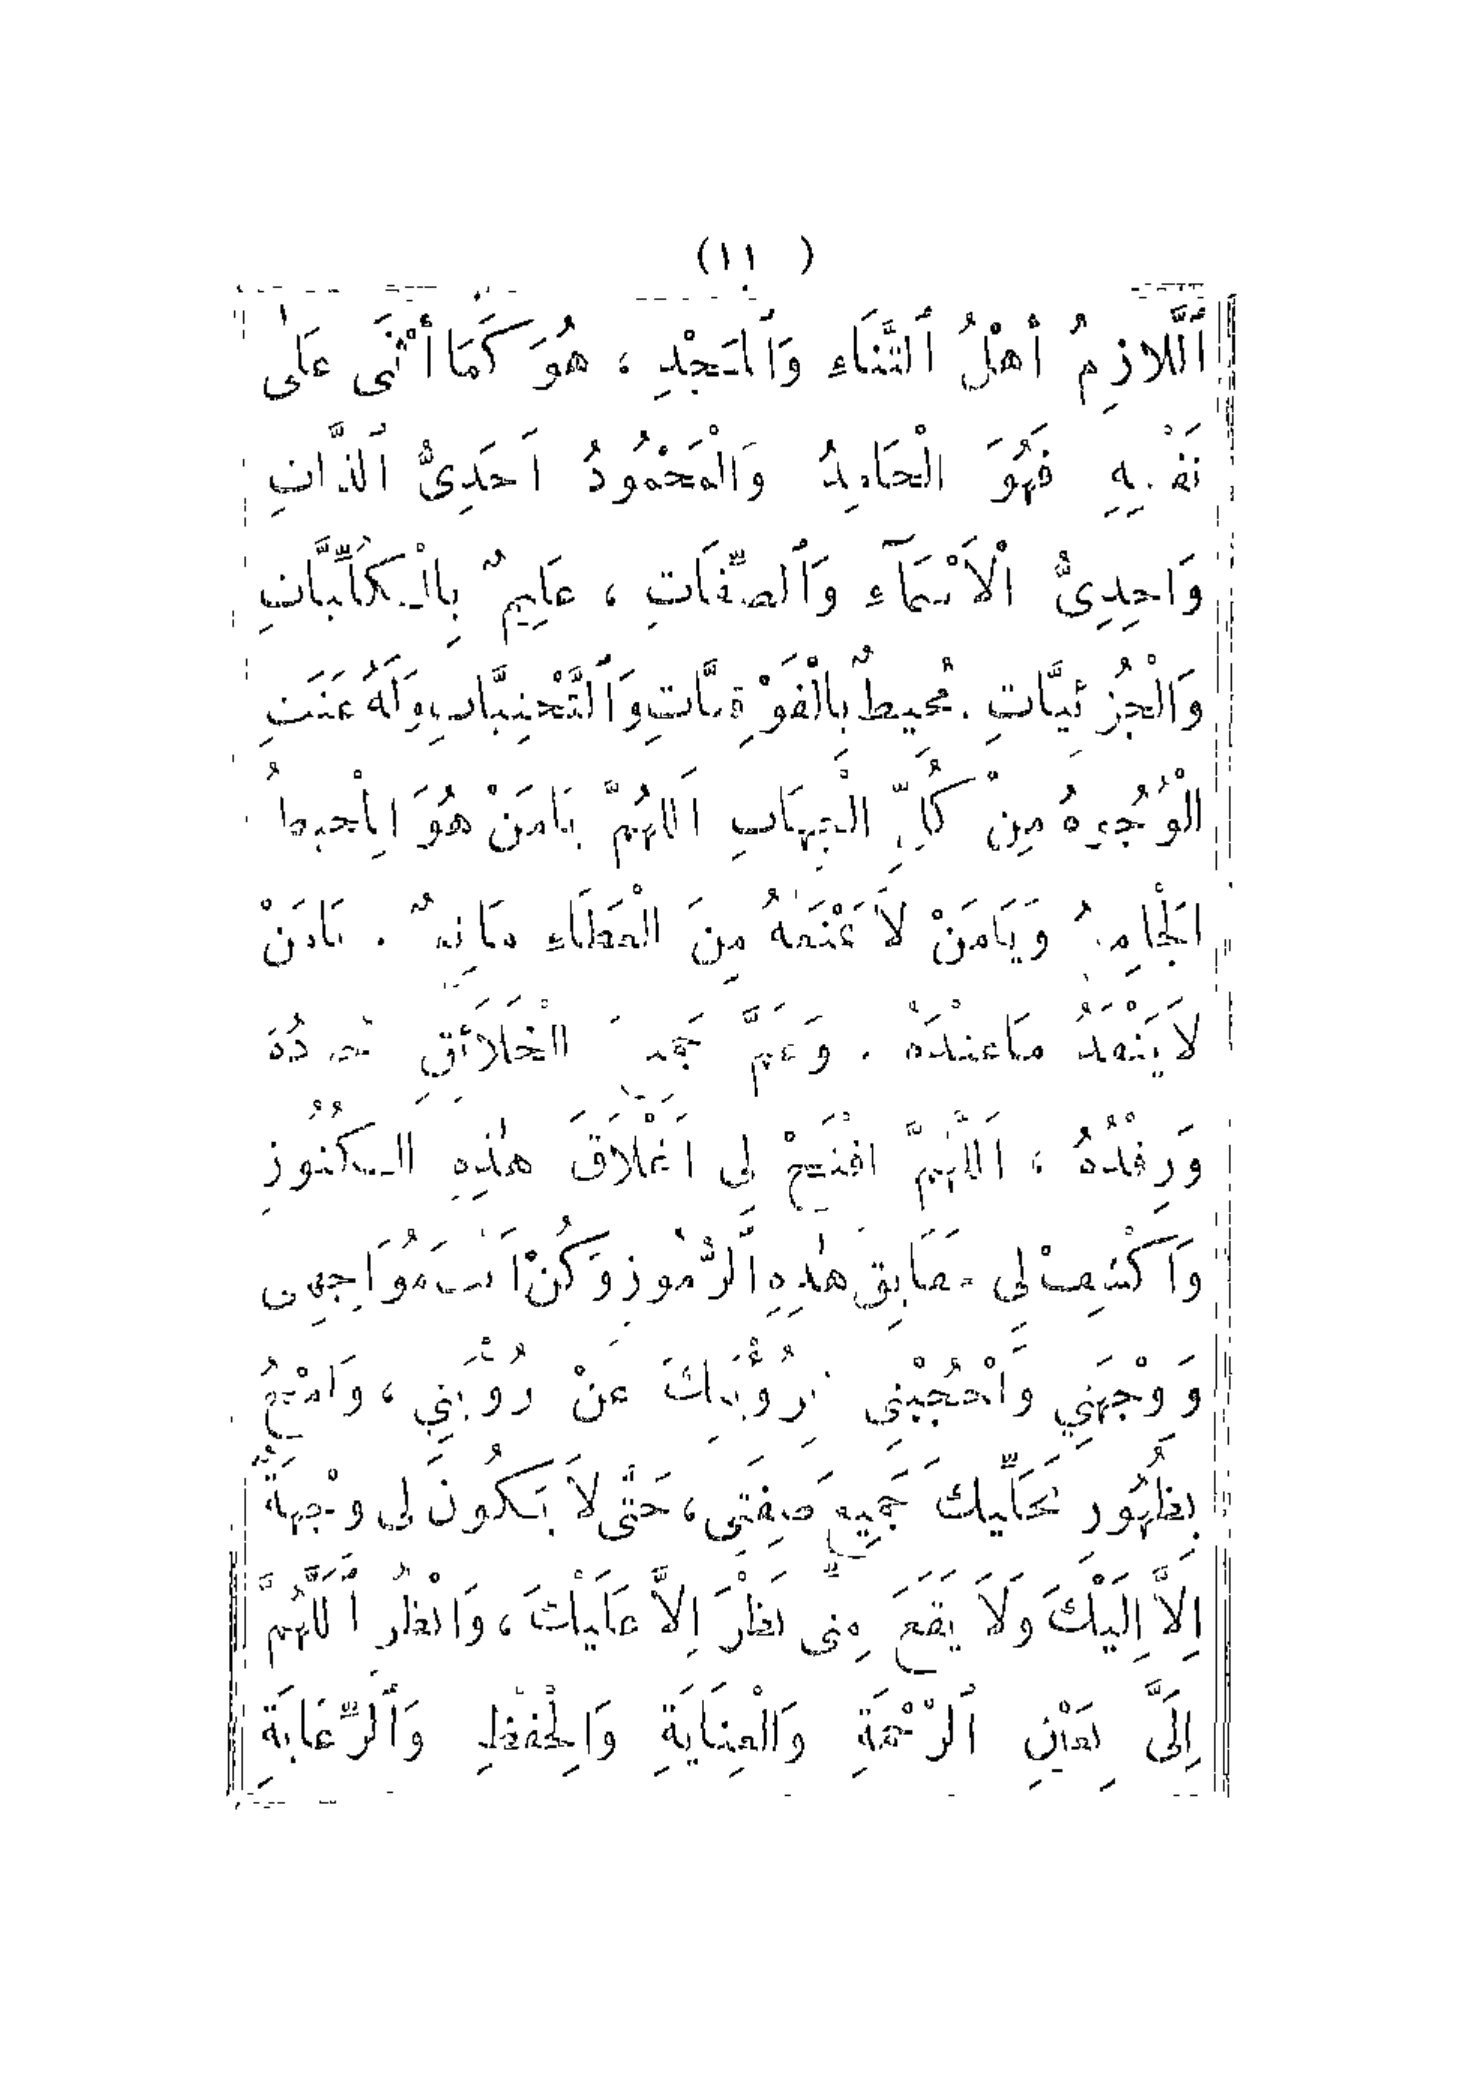 (١١)
ٱللَّازِمُ أَهْلُ ٱلثَّنَاءِ وَٱلْمَجْدِ ، هُوَ كَمَا أَثْنَى عَلَى
نَفْسِهِ فَهُوَ الْحَامِدُ وَالْمَحْمُودُ اَحَدِىُّ ٱلذَّاتِ
وَاحِدِىُّ الْاَسْمَآءِ وَٱلصِّفَاتِ ، عَلِيمٌ بِالْكُلِّيَّاتِ
وَالْجُزْئِيَّاتِ . مُحِيطٌ بِالْفَوْقِيَّاتِ وَٱلتَّحْتِيَّاتِ وَلَهُ عَنَتِ
الْوُجُوهُ مِنْ كُلِّ الْجِهَاتِ اَللهُمَّ يَامَنْ هُوَ الْمُحِيطُ
الْجَامِعُ وَيَامَنْ لَا يَمْنَعُهُ مِنَ الْعَطَاءِ مَانِعٌ . يَامَنْ
لَايَنْفَدُ مَاعِنْدَهُ . وَعَمَّ جَمِيعَ الْخَلَائِقِ جُودُهُ
وَرِفْدُهُ ، اَللّٰهُمَّ افْتَحْ لِى اَغْلَاقَ هٰذِهِ الْكُنُوزِ
وَاكْشِفْ لِى حَقَايِقَ هٰذِهِ ٱلرُّمُوزِ وَكُنْ اَنْتَ مُوَاجِهِى
وَوِجْهَتِي وَاحْجُبْنِى بِرُؤْيَتِكَ عَنْ رُؤْيَتِي ، وَامْحُ
بِظُهُورِ تَجَلِّيكَ جَمِيعَ صِفَتِى ، حَتَّى لَا يَكُونَ لِى وِجْهَةٌ
اِلَّا اِلَيْكَ وَلَا يَقَعَ مِنِّى نَظَرٌ اِلَّا عَلَيْكَ ، وَانْظُرْ ٱللّٰهُمَّ
اِلَىَّ بِعَيْنِ ٱلرَّحْمَةِ وَالْعِنَايَةِ وَالْحِفْظِ وَٱلرِّعَايَةِ